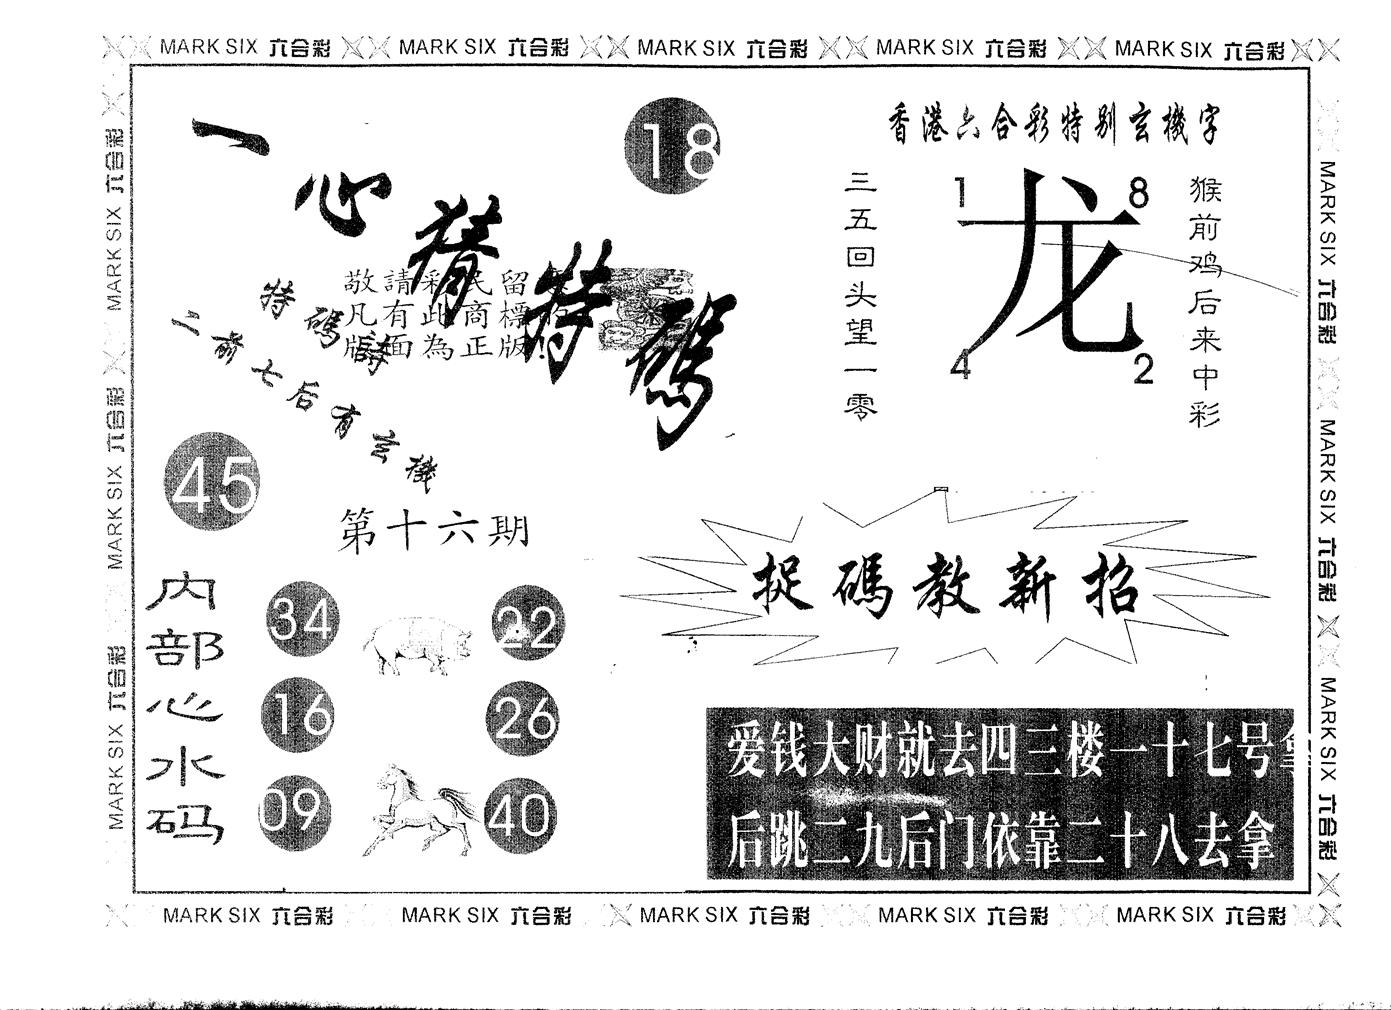 MARK SIX 六合彩 MARK SIX 六合彩 MARK SIX 六合彩 MARK SIX 六合彩 MARK SIX 六合彩
MARK SIX 六合彩 MARK SIX 六合彩 MARK SIX 六合彩
一心猜特碼
18
敬請彩民留
凡有此商標
版面為正版!
特碼詩
二前七后有玄機
45
第十六期
内部心水码
34
22
16
26
09
40
香港六合彩特别玄機字
三五回头望一零
1
8
龙
4
2
猴前鸡后来中彩
捉碼教新招
爱钱大财就去四三楼一十七号
后跳二九后门依靠二十八去拿
MARK SIX 六合彩 MARK SIX 六合彩 MARK SIX 六合彩
MARK SIX 六合彩 MARK SIX 六合彩 MARK SIX 六合彩 MARK SIX 六合彩 MARK SIX 六合彩